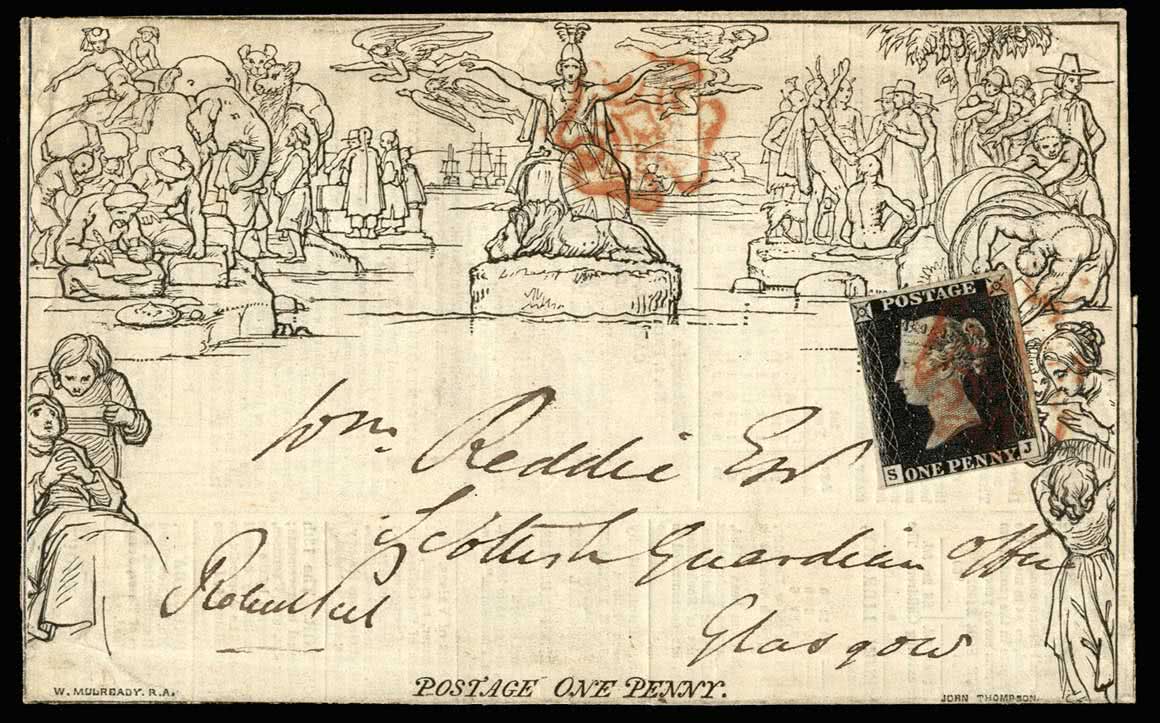 POSTAGE
S ONE PENNY J
Wm. Reddie Esqr
Scottish Guardian Office
Glasgow
W. MULREADY. R.A.
POSTAGE ONE PENNY.
JOHN THOMPSON.